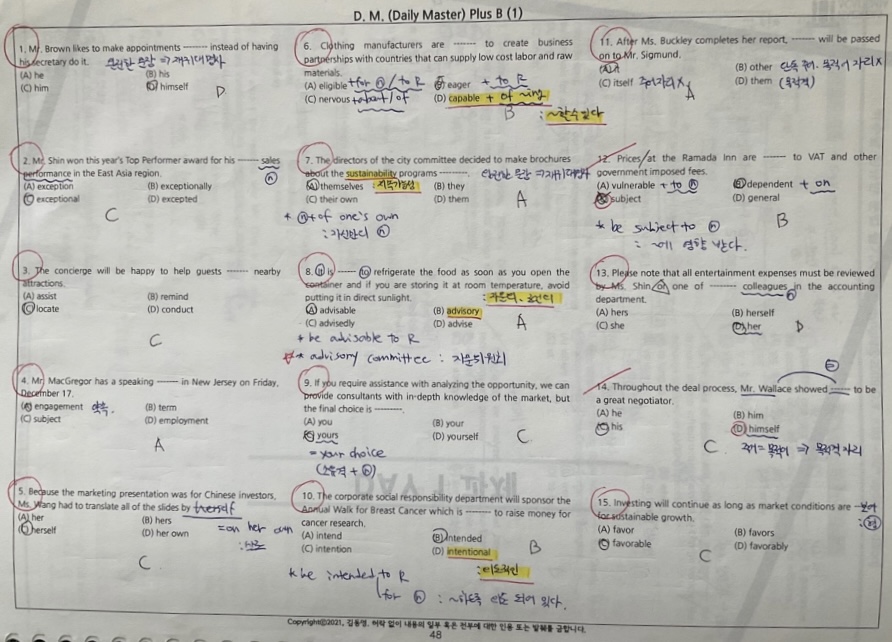 D. M. (Daily Master) Plus B (1)
1. Mr. Brown likes to make appointments -------- instead of having
his secretary do it. 완전한 문장 ⇒ 재귀대명사
(A) he (B) his
(C) him (D) himself
D
2. Mr. Shin won this year's Top Performer award for his -------- sales
performance in the East Asia region. ⓝ
(A) exception (B) exceptionally
(C) exceptional (D) excepted
C
3. The concierge will be happy to help guests -------- nearby
attractions.
(A) assist (B) remind
(C) locate (D) conduct
C
4. Mr. MacGregor has a speaking -------- in New Jersey on Friday,
December 17.
(A) engagement 약속. (B) term
(C) subject (D) employment
A
5. Because the marketing presentation was for Chinese investors,
Ms. Wang had to translate all of the slides by herself
(A) her (B) hers
(C) herself (D) her own = on her own
C
6. Clothing manufacturers are -------- to create business
partnerships with countries that can supply low cost labor and raw
materials.
(A) eligible + for ⓝ / to R (B) eager + to R
(C) nervous + about / of (D) capable + of ~ing
B : ~할 수 있다
7. The directors of the city committee decided to make brochures
about the sustainability programs --------. 완전한 문장 ⇒ 재귀대명사
(A) themselves : 지속가능성 (B) they
(C) their own (D) them
A
* ⓝ + of one's own
: 자신만의 ⓝ
8. It is -------- to refrigerate the food as soon as you open the
container and if you are storing it at room temperature, avoid
putting it in direct sunlight.
(A) advisable (B) advisory
(C) advisedly (D) advise
A
* be advisable to R
* advisory committee : 자문위원회
9. If you require assistance with analyzing the opportunity, we can
provide consultants with in-depth knowledge of the market, but
the final choice is --------.
(A) you (B) your
(C) yours (D) yourself
C
= your choice
(소유격 + ⓝ)
10. The corporate social responsibility department will sponsor the
Annual Walk for Breast Cancer which is -------- to raise money for
cancer research.
(A) intend (B) intended
(C) intention (D) intentional
B : 의도적인
* be intended to R
for ⓝ : ~하도록 의도 되어 있다.
11. After Ms. Buckley completes her report, -------- will be passed
on to Mr. Sigmund.
(A) it (B) other 단독 주어, 목적어 자리 X
(C) itself 주어자리 X (D) them (목적격)
A
12. Prices at the Ramada Inn are -------- to VAT and other
government imposed fees.
(A) vulnerable + to ⓝ (B) dependent + on
(C) subject (D) general
B
* be subject to ⓝ
: ~에 영향 받다.
13. Please note that all entertainment expenses must be reviewed
by Ms. Shin or one of -------- colleagues in the accounting
department. ⓝ
(A) hers (B) herself
(C) she (D) her
D
14. Throughout the deal process, Mr. Wallace showed -------- to be
a great negotiator.
(A) he (B) him
(C) his (D) himself
C 주어 = 목적어 ⇒ 목적격 자리
15. Investing will continue as long as market conditions are --------
for sustainable growth.
(A) favor (B) favors
(C) favorable (D) favorably
C
Copyrightⓒ2021, 김동영. 허락 없이 내용의 일부 혹은 전부에 대한 인용 또는 발췌를 금합니다.
48